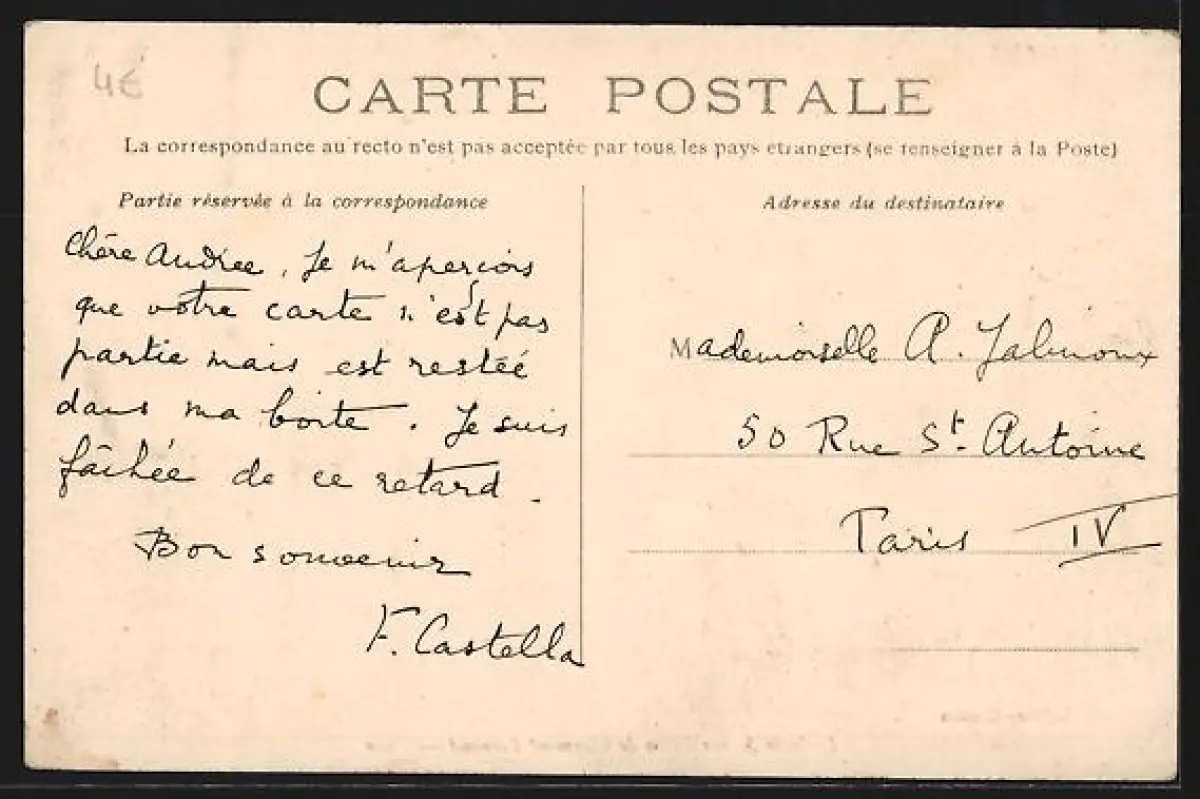 4€
CARTE POSTALE
La correspondance au recto n'est pas acceptée par tous les pays etrangers (se renseigner à la Poste)
Partie réservée à la correspondance
Chère Andree, Je m'aperçois
que votre carte n'est pas
partie mais est restéé
dans ma boite. Je suis
fâchée de ce retard.
Bon souvenir
F. Castella
Adresse du destinataire
Mademoiselle A.
50 Rue St. Antoine
Paris IV